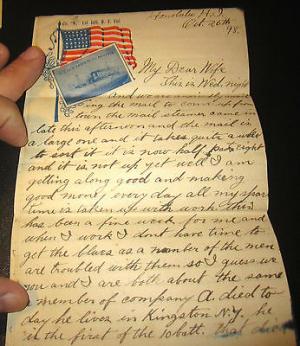 Co. "K" 1st
Honolulu H.I.
Oct. 26th
98.
My Dear Wife
This is Wed. night
and we
ing the mail to come up from
town the mail steamer came
late this afternoon and the mail is
a large one and it takes quite a while
to sort it it is now half past eight
and it is not up yet well I am
getting along good and making
good money every day all my spare
time is taken up with work this
has been a fine work for me and
when I work I dont have time to
get the blues as a number of the men
are troubled with them so I guess we
you and I are both about the same
a member of company A. died to
day he lives in Kingston N.Y. he
is the first of the 1o batt. that died